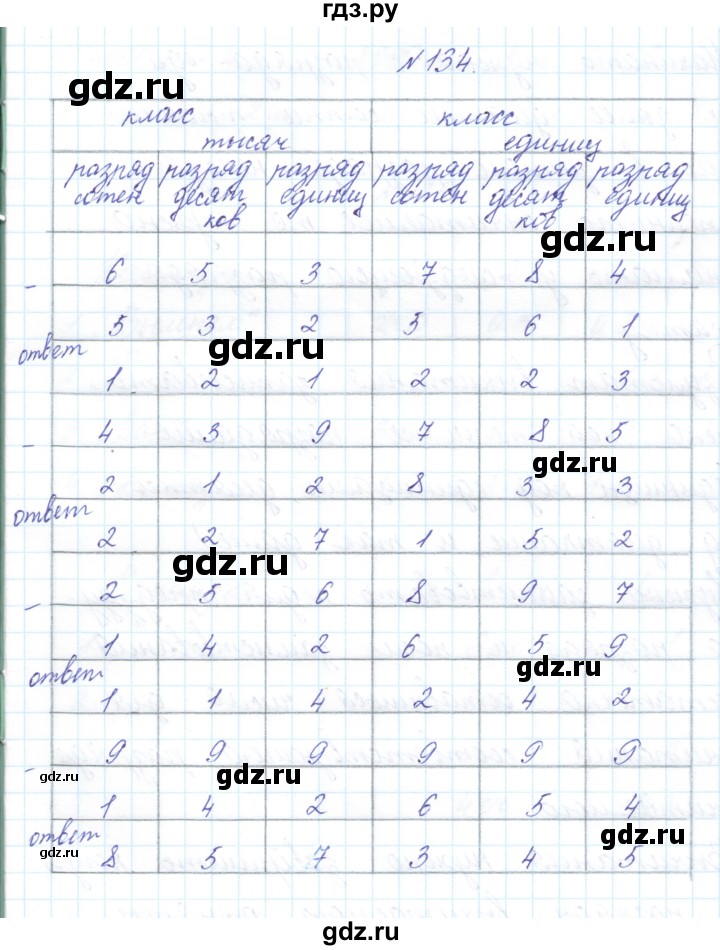 гдз.ру
№134.
gdz.ru
класс тысяч класс единиц
разряд сотен разряд десятков разряд единиц разряд сотен разряд десятков разряд единиц
gdz.ru
- 6 5 3 7 8 4
5 3 2 5 6 1
gdz.ru
ответ 1 2 1 2 2 3
- 4 3 9 7 8 5
gdz.ru
2 1 2 8 3 3
ответ 2 2 7 1 5 2
gdz.ru
- 2 5 6 8 9 7
1 4 2 6 5 9
gdz.ru
ответ 1 1 4 2 4 2
- 9 9 9 9 9 9
gdz.ru gdz.ru
1 4 2 6 5 4
gdz.ru
ответ 8 5 7 3 4 5
gdz.ru
gdz.ru